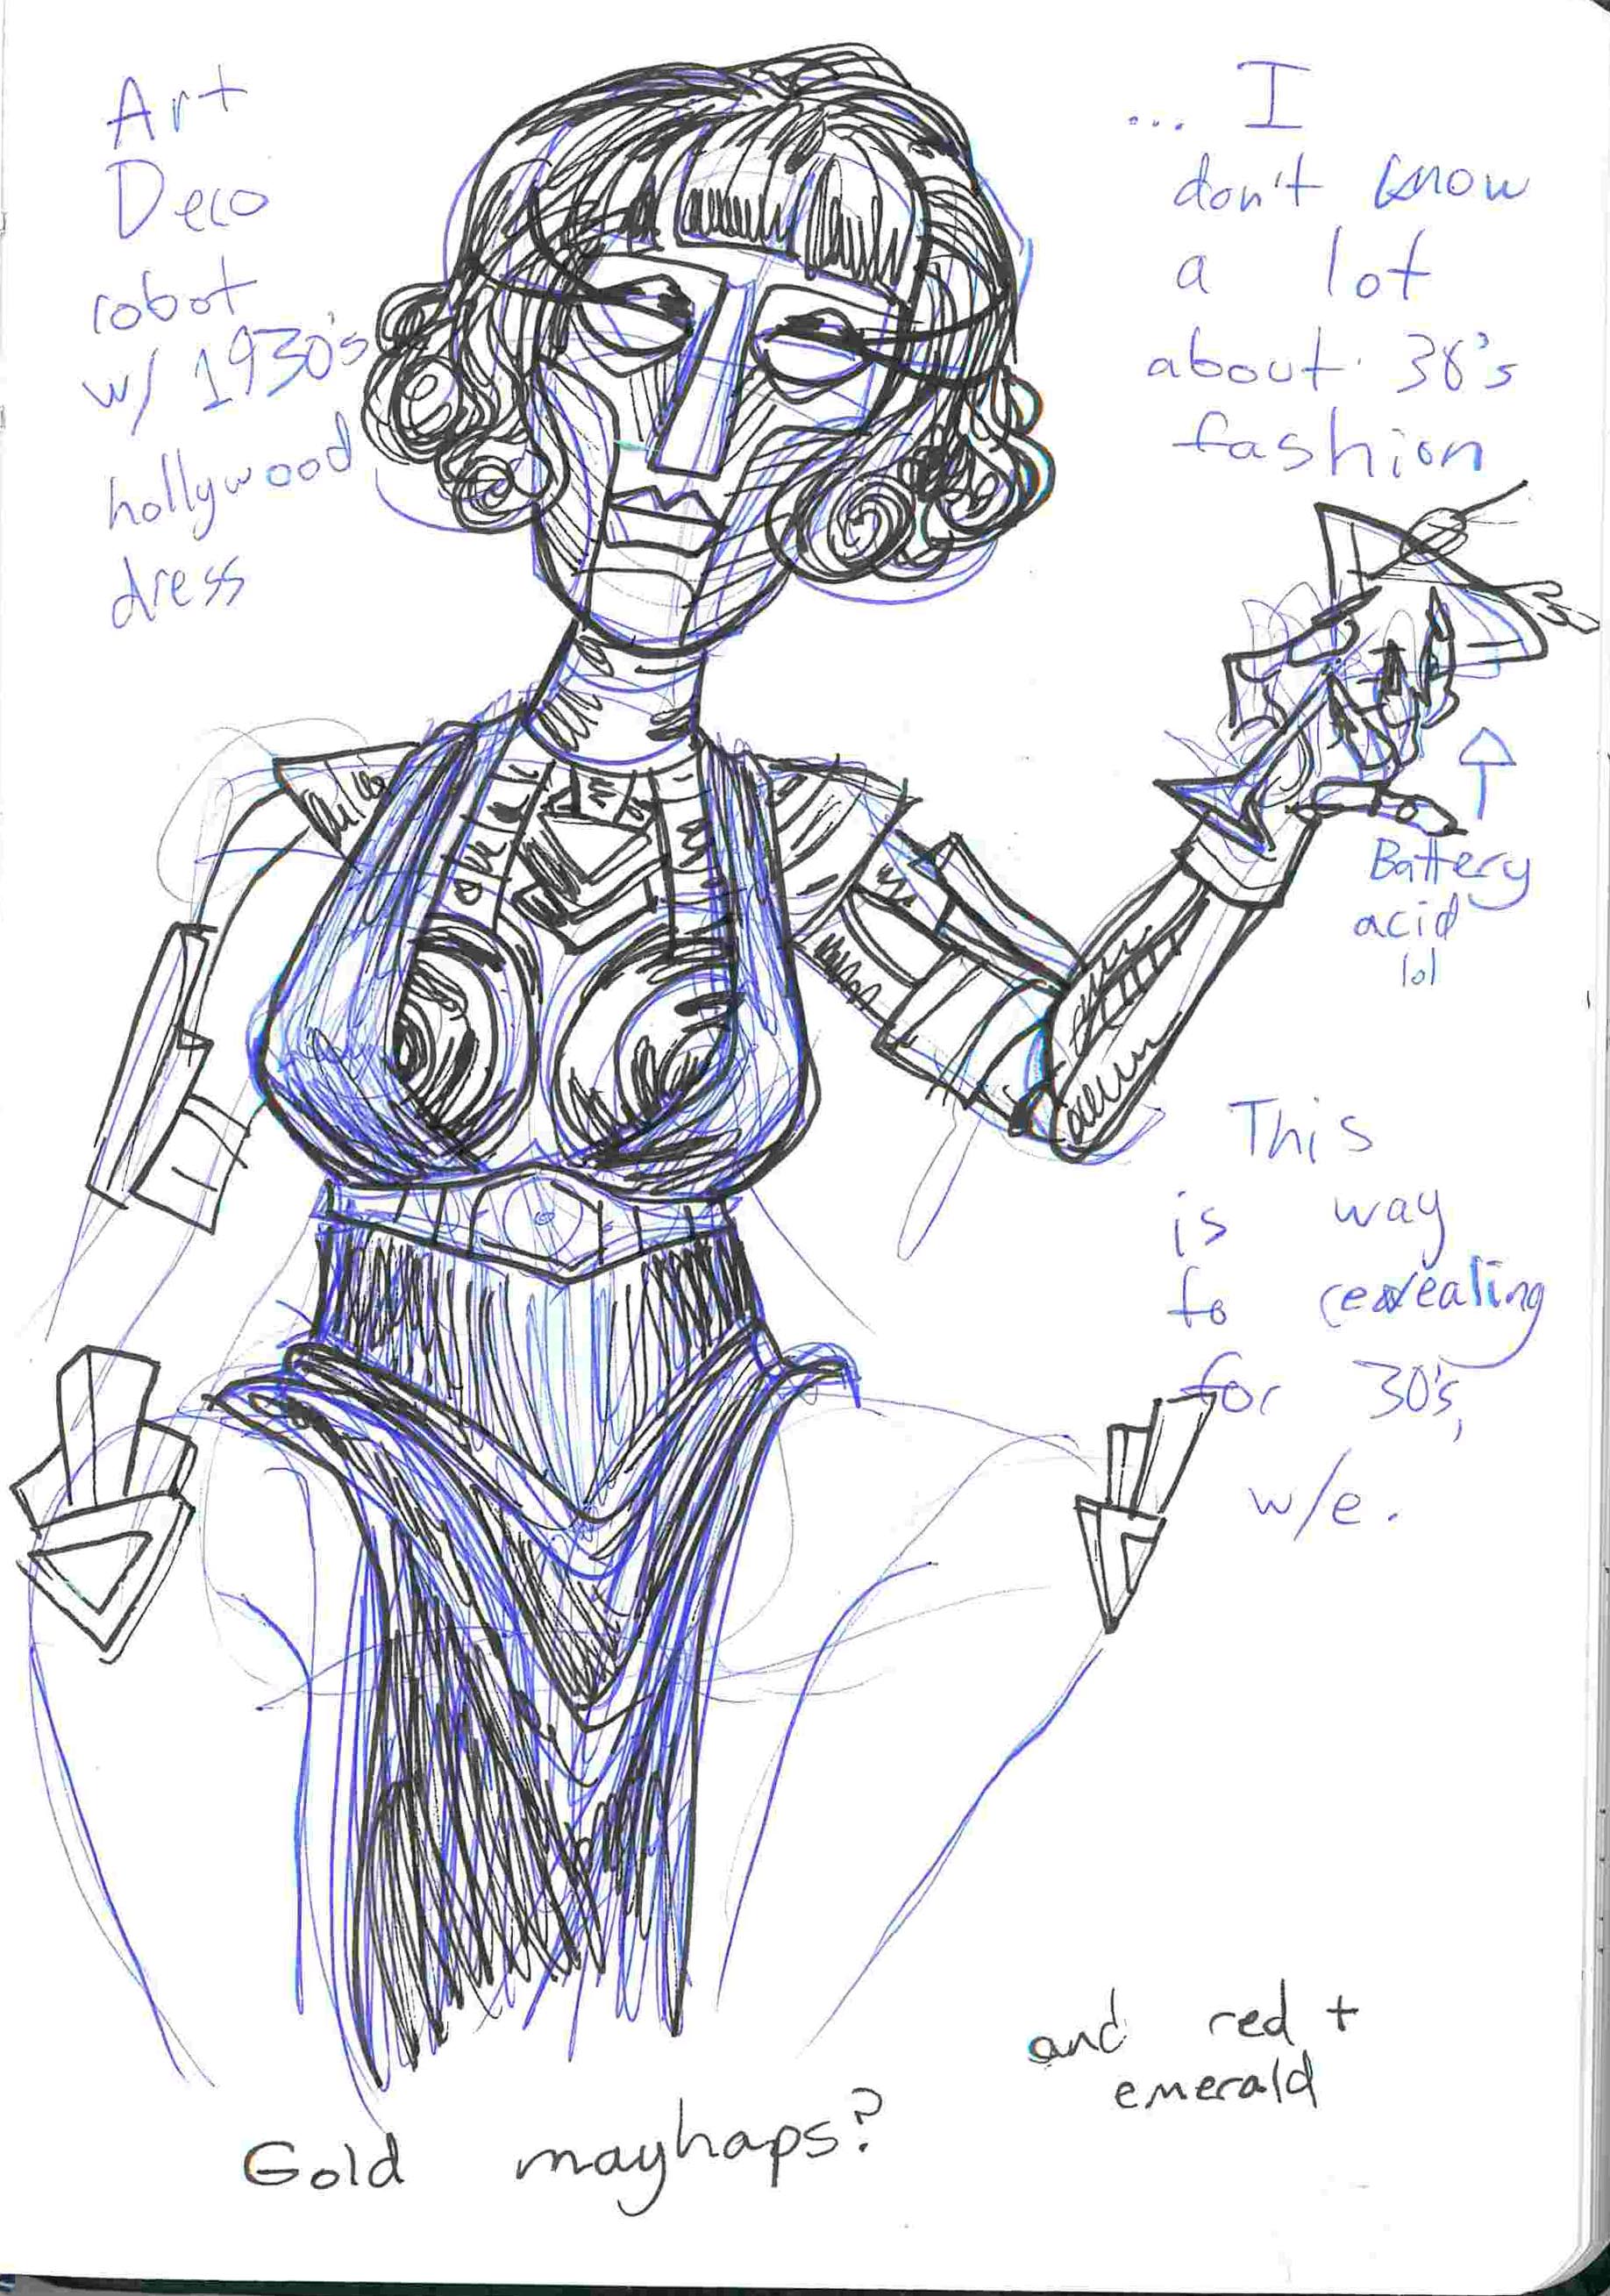 Art
Deco
robot
w/ 1930's
hollywood
dress
... I
don't know
a lot
about 30's
fashion
Battery
acid
lol
This
is way
to revealing
for 30's,
w/e.
and red +
emerald
Gold mayhaps?